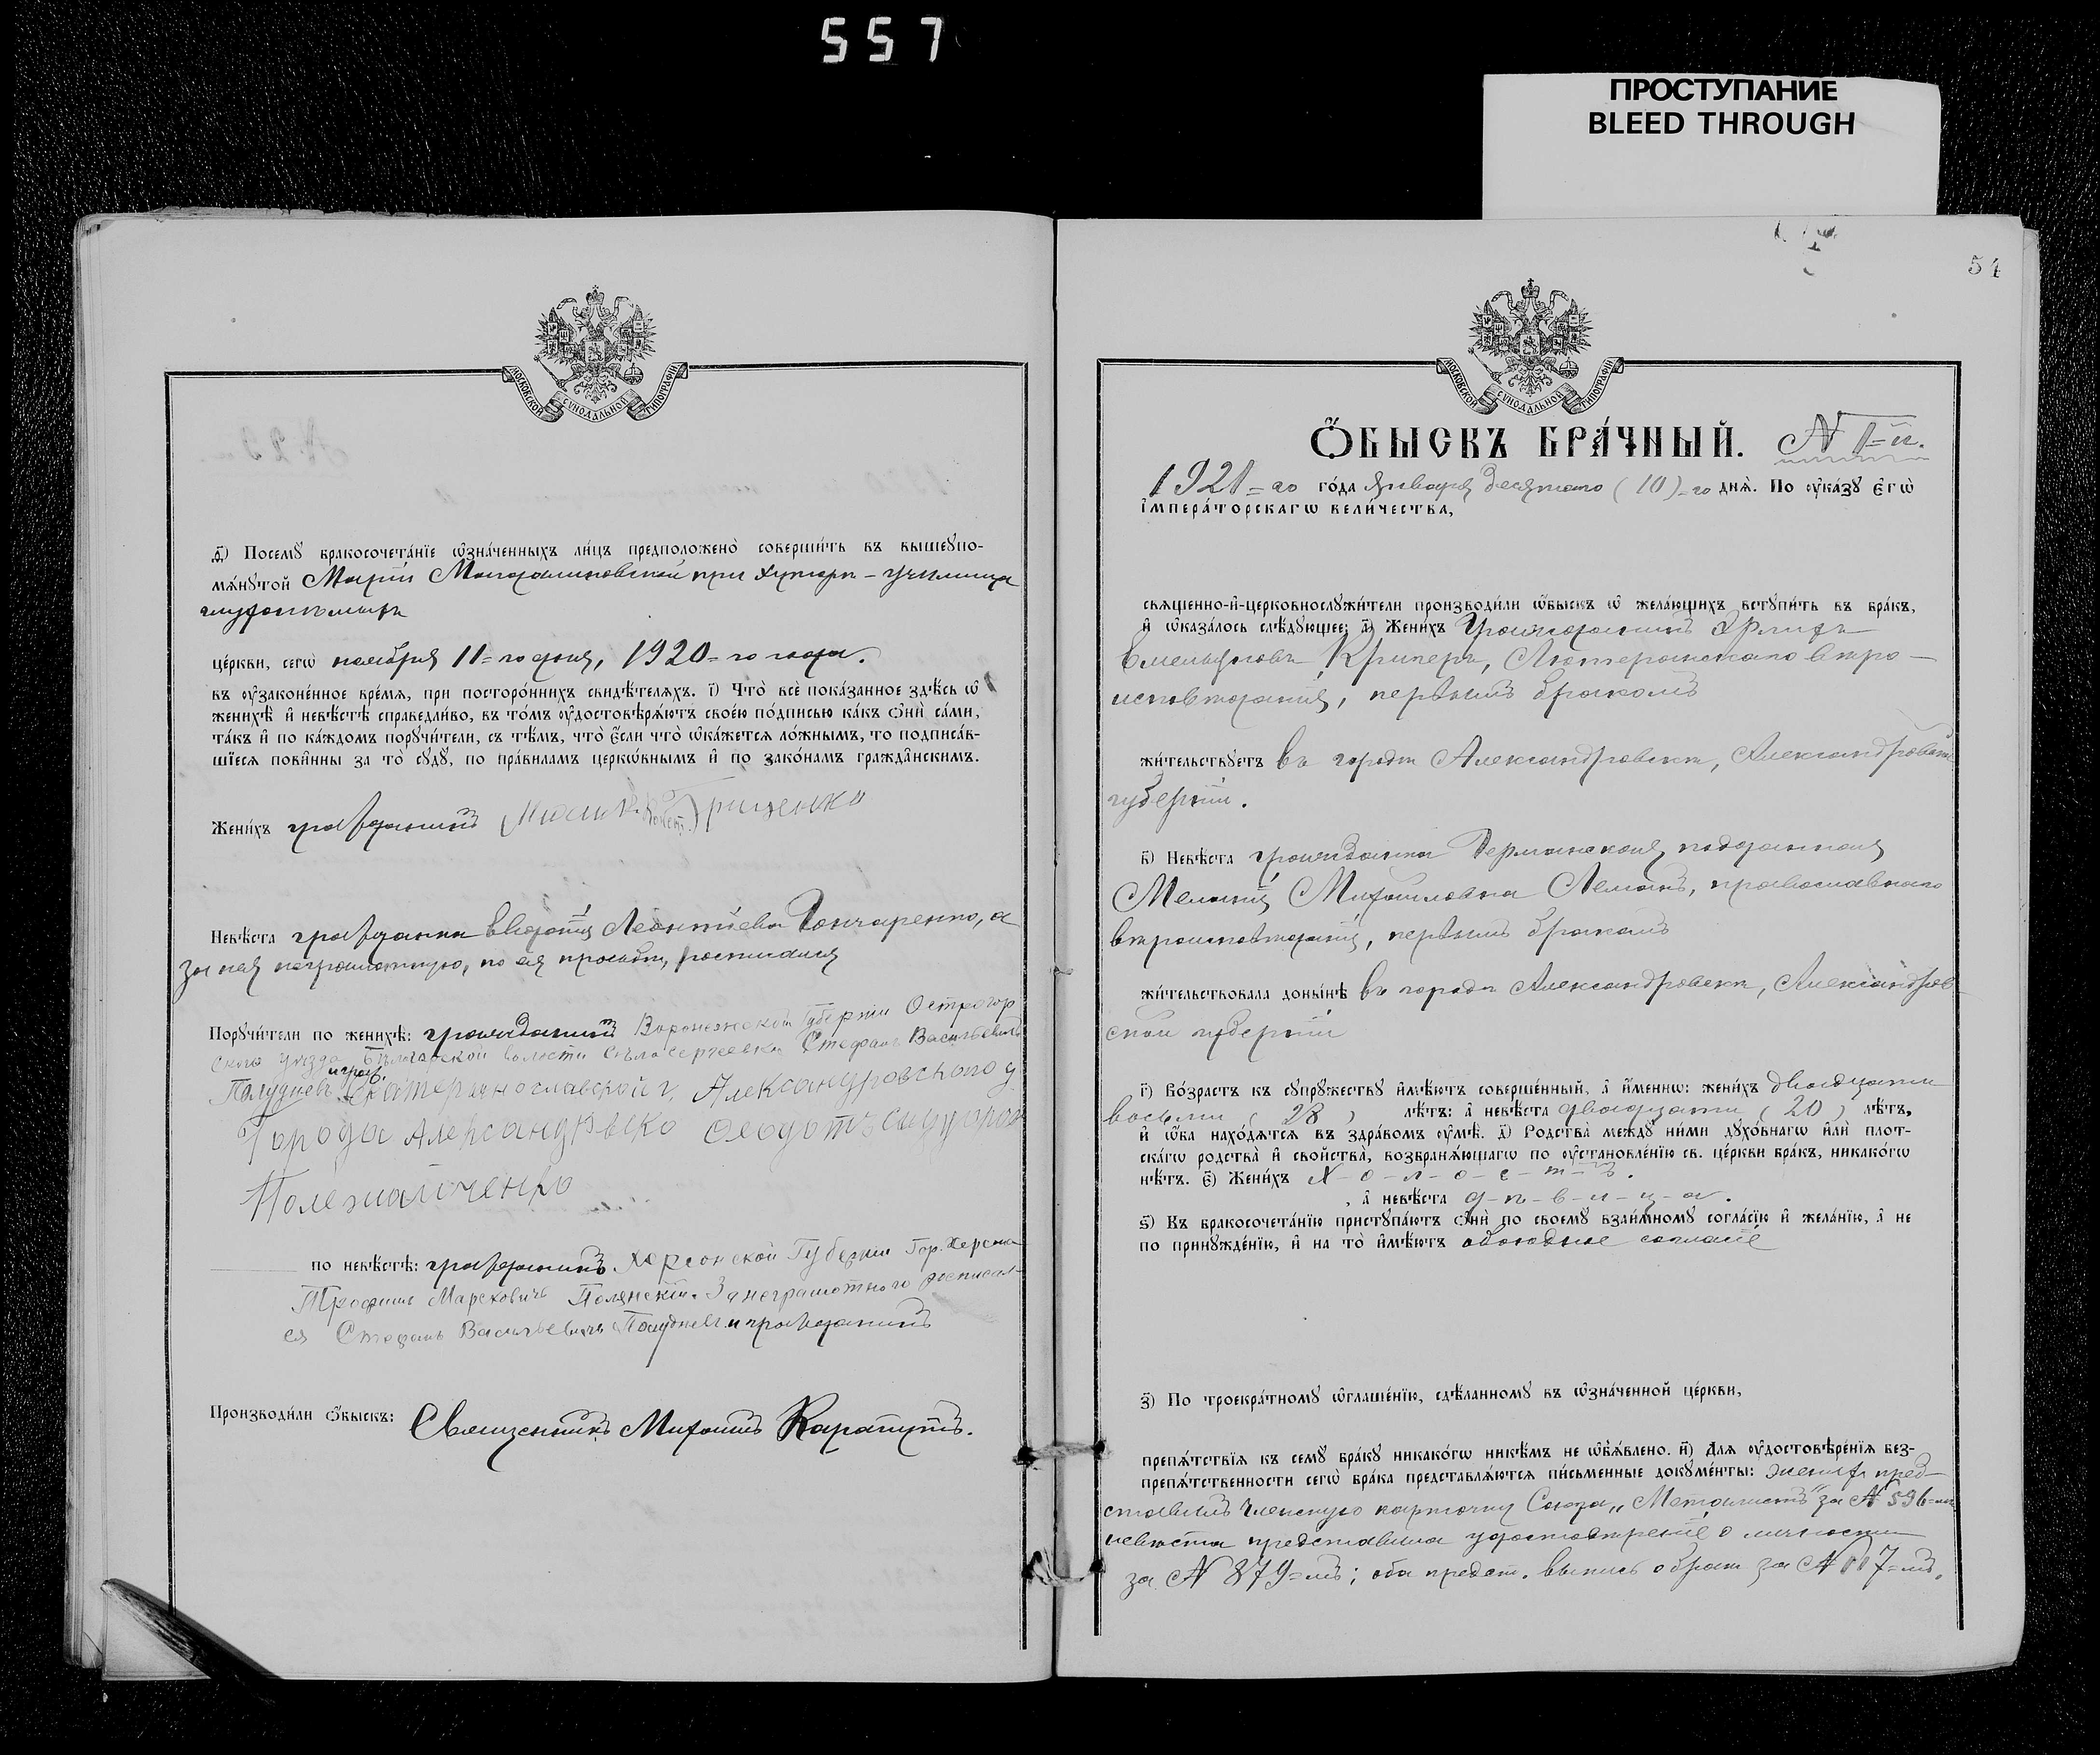 557
ПРОСТУПАНИЕ
BLEED THROUGH
МОСКОВСКОЙ СѴНОДАЛЬНОЙ ТИПОГРАФІИ
ѳ҃) Посемꙋ̀ бракосочета́нїе ѡ҆зна́ченныхъ ли́цъ предположено̀ соверши́ть въ вышеꙋпо-
мѧ́нꙋтой Маріи Магдалиновской при хуторѣ - училища
глухонѣмыхъ
це́ркви, сегѡ̀ ноября 11=го дня, 1920=го года.
въ ᲂу҆зако́не́нное вре́мѧ, при посторо́ннихъ свидѣ́телѧхъ. і҃) Что̀ всѐ пока́занное здѣ́сь ѡ҆
женихѣ̀ и҆ невѣ́стѣ справедли́во, въ то́мъ ᲂу҆достовѣрѧ́ютъ свое́ю по́дписью ка́къ ѻ҆нѝ са́ми,
та́къ и҆ по ка́ждомъ порꙋчи́тели, съ тѣ́мъ, что̀ є҆́сли что̀ ѡ҆ка́жетсѧ ло́жнымъ, то подписа́в-
шїесѧ пови́нны за то̀ сꙋдꙋ̀, по пра́виламъ церко́внымъ и҆ по зако́намъ гражда́нскимъ.
Жени́хъ гражданинъ Грищенко
Невѣ́ста гражданка Леонтіева Гончаренко, а
за нея неграмотную, по ея просьбѣ, росписался
Порꙋчи́тели по женихѣ̀: гражданинъ Воронежской Губерніи Острогор
ского уезда волости Стефанъ Васильевичъ
Полудневъ. и граж. Екатеринославской г. Александровского у
Города Александрвско Ѳеодотъ
Полежаюченко
по невѣ́стѣ: гражданинъ Херсонской Губерніи Гор. Херсона
Трофимъ Марковичъ Полянскій. За неграмотного росписал-
ся Стефанъ Васильевичъ Полудневъ и гражданинъ
Производи́ли ѻ҆́быскъ: Священникъ Михаилъ Карапутъ.
54
МОСКОВСКОЙ СѴНОДАЛЬНОЙ ТИПОГРАФІИ
Ѻ҆́БЫСКЪ БРА́ЧНЫЙ. № 1=й.
1921=го го́да Января десятаго (10)=го днѧ̀. По ᲂу҆ка́зꙋ Є҆гѡ̀
І҆мпера́торскагѡ вели́чества,
свѧще́нно-и҆-церковнослꙋжи́тели производи́ли ѡ҆́быскъ ѡ҆ жела́ющихъ встꙋпи́ть въ бра́къ,
и҆ ѡ҆каза́лось слѣ́дꙋющее: а҃) Жени́хъ Гражданинъ Эрлихъ
Емельяновъ Кригеръ, Лютеранскаго вѣро-
исповѣданія, первымъ бракомъ
жи́тельствꙋетъ въ городѣ Александровскѣ, Александровской
губерніи.
в҃) Невѣ́ста гражданка Германская подданная
Меланія Михайловна Леманъ, православнаго
вѣроисповѣданія, первымъ бракомъ
жи́тельствовала доны́нѣ въ городѣ Александровскѣ, Александров-
ской губерніи
г҃) Во́зрастъ къ сꙋпрꙋ́жествꙋ и҆мѣ́ютъ соверше́нный, а҆ и҆́меннѡ: жени́хъ двадцати
восьми ( 28 ) лѣ́тъ: а҆ невѣ́ста двадцати ( 20 ) лѣ́тъ,
и҆ ѻ҆́ба нахо́дѧтсѧ въ здра́вомъ ᲂу҆мѣ̀. д҃) Родства̀ междꙋ̀ ни́ми дꙋхо́внагѡ и҆лѝ плот-
ска́гѡ родства̀ и҆ свойства̀, возбранѧ́ющагѡ по ᲂу҆становле́нїю св. це́ркви бра́къ, никако́гѡ
нѣ́тъ. є҃) Жени́хъ х-о-л-о-с-т-ъ.
, а҆ невѣ́ста д-ѣ-в-и-ц-а.
ѕ҃) Въ бракосочета́нїю пристꙋпа́ютъ ѻ҆нѝ по своемꙋ̀ взаи́мномꙋ согла́сїю и҆ жела́нїю, а҆ не
по принꙋжде́нїю, и҆ на то̀ и҆мѣ́ютъ обоюдное согласіе
з҃) По троекра́тномꙋ ѡ҆глаше́нїю, сдѣ́ланномꙋ въ ѡ҆зна́ченной це́ркви,
препѧ́тствїѧ къ семꙋ̀ бра́кꙋ никако́гѡ никѣ́мъ не ѡ҆б̾ѧ́влено. и҃) Длѧ ᲂу҆достовѣре́нїѧ без-
препѧ́тственности сегѡ̀ бра́ка представлѧ́ютсѧ пи́сьменные докꙋме́нты: женихъ пред-
ставилъ членскую карточку Союза „Металистъ" за № 596=мъ
невѣста представила удостовѣреніе о личности
за № 879=мъ; оба предст. выпись о бракѣ за № 117=мъ.